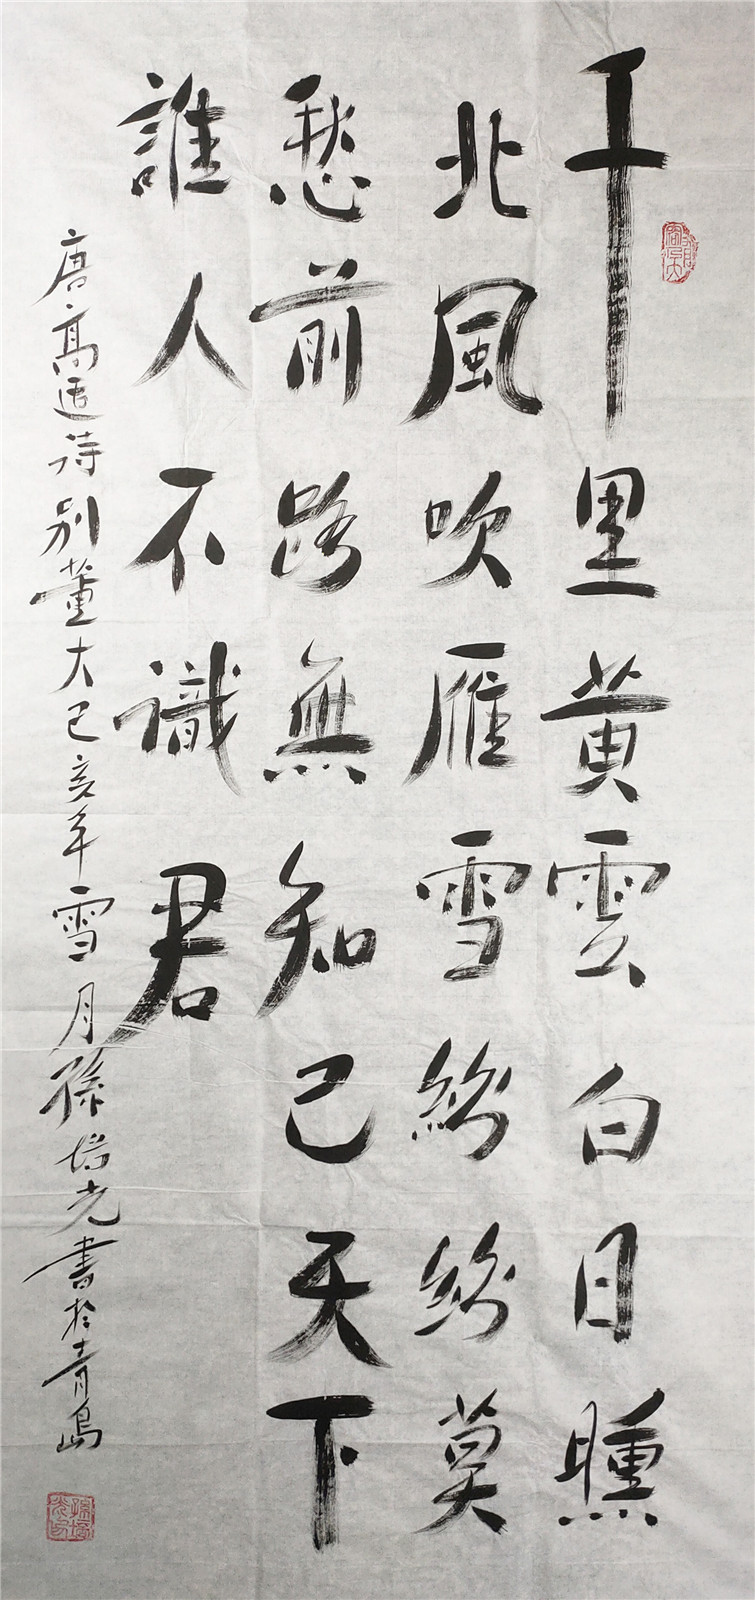 千里黄雲白日曛
北風吹雁雪紛紛莫
愁前路無知己天下
誰人不識君
唐高适诗别董大己亥年雪月孫培光書於青島